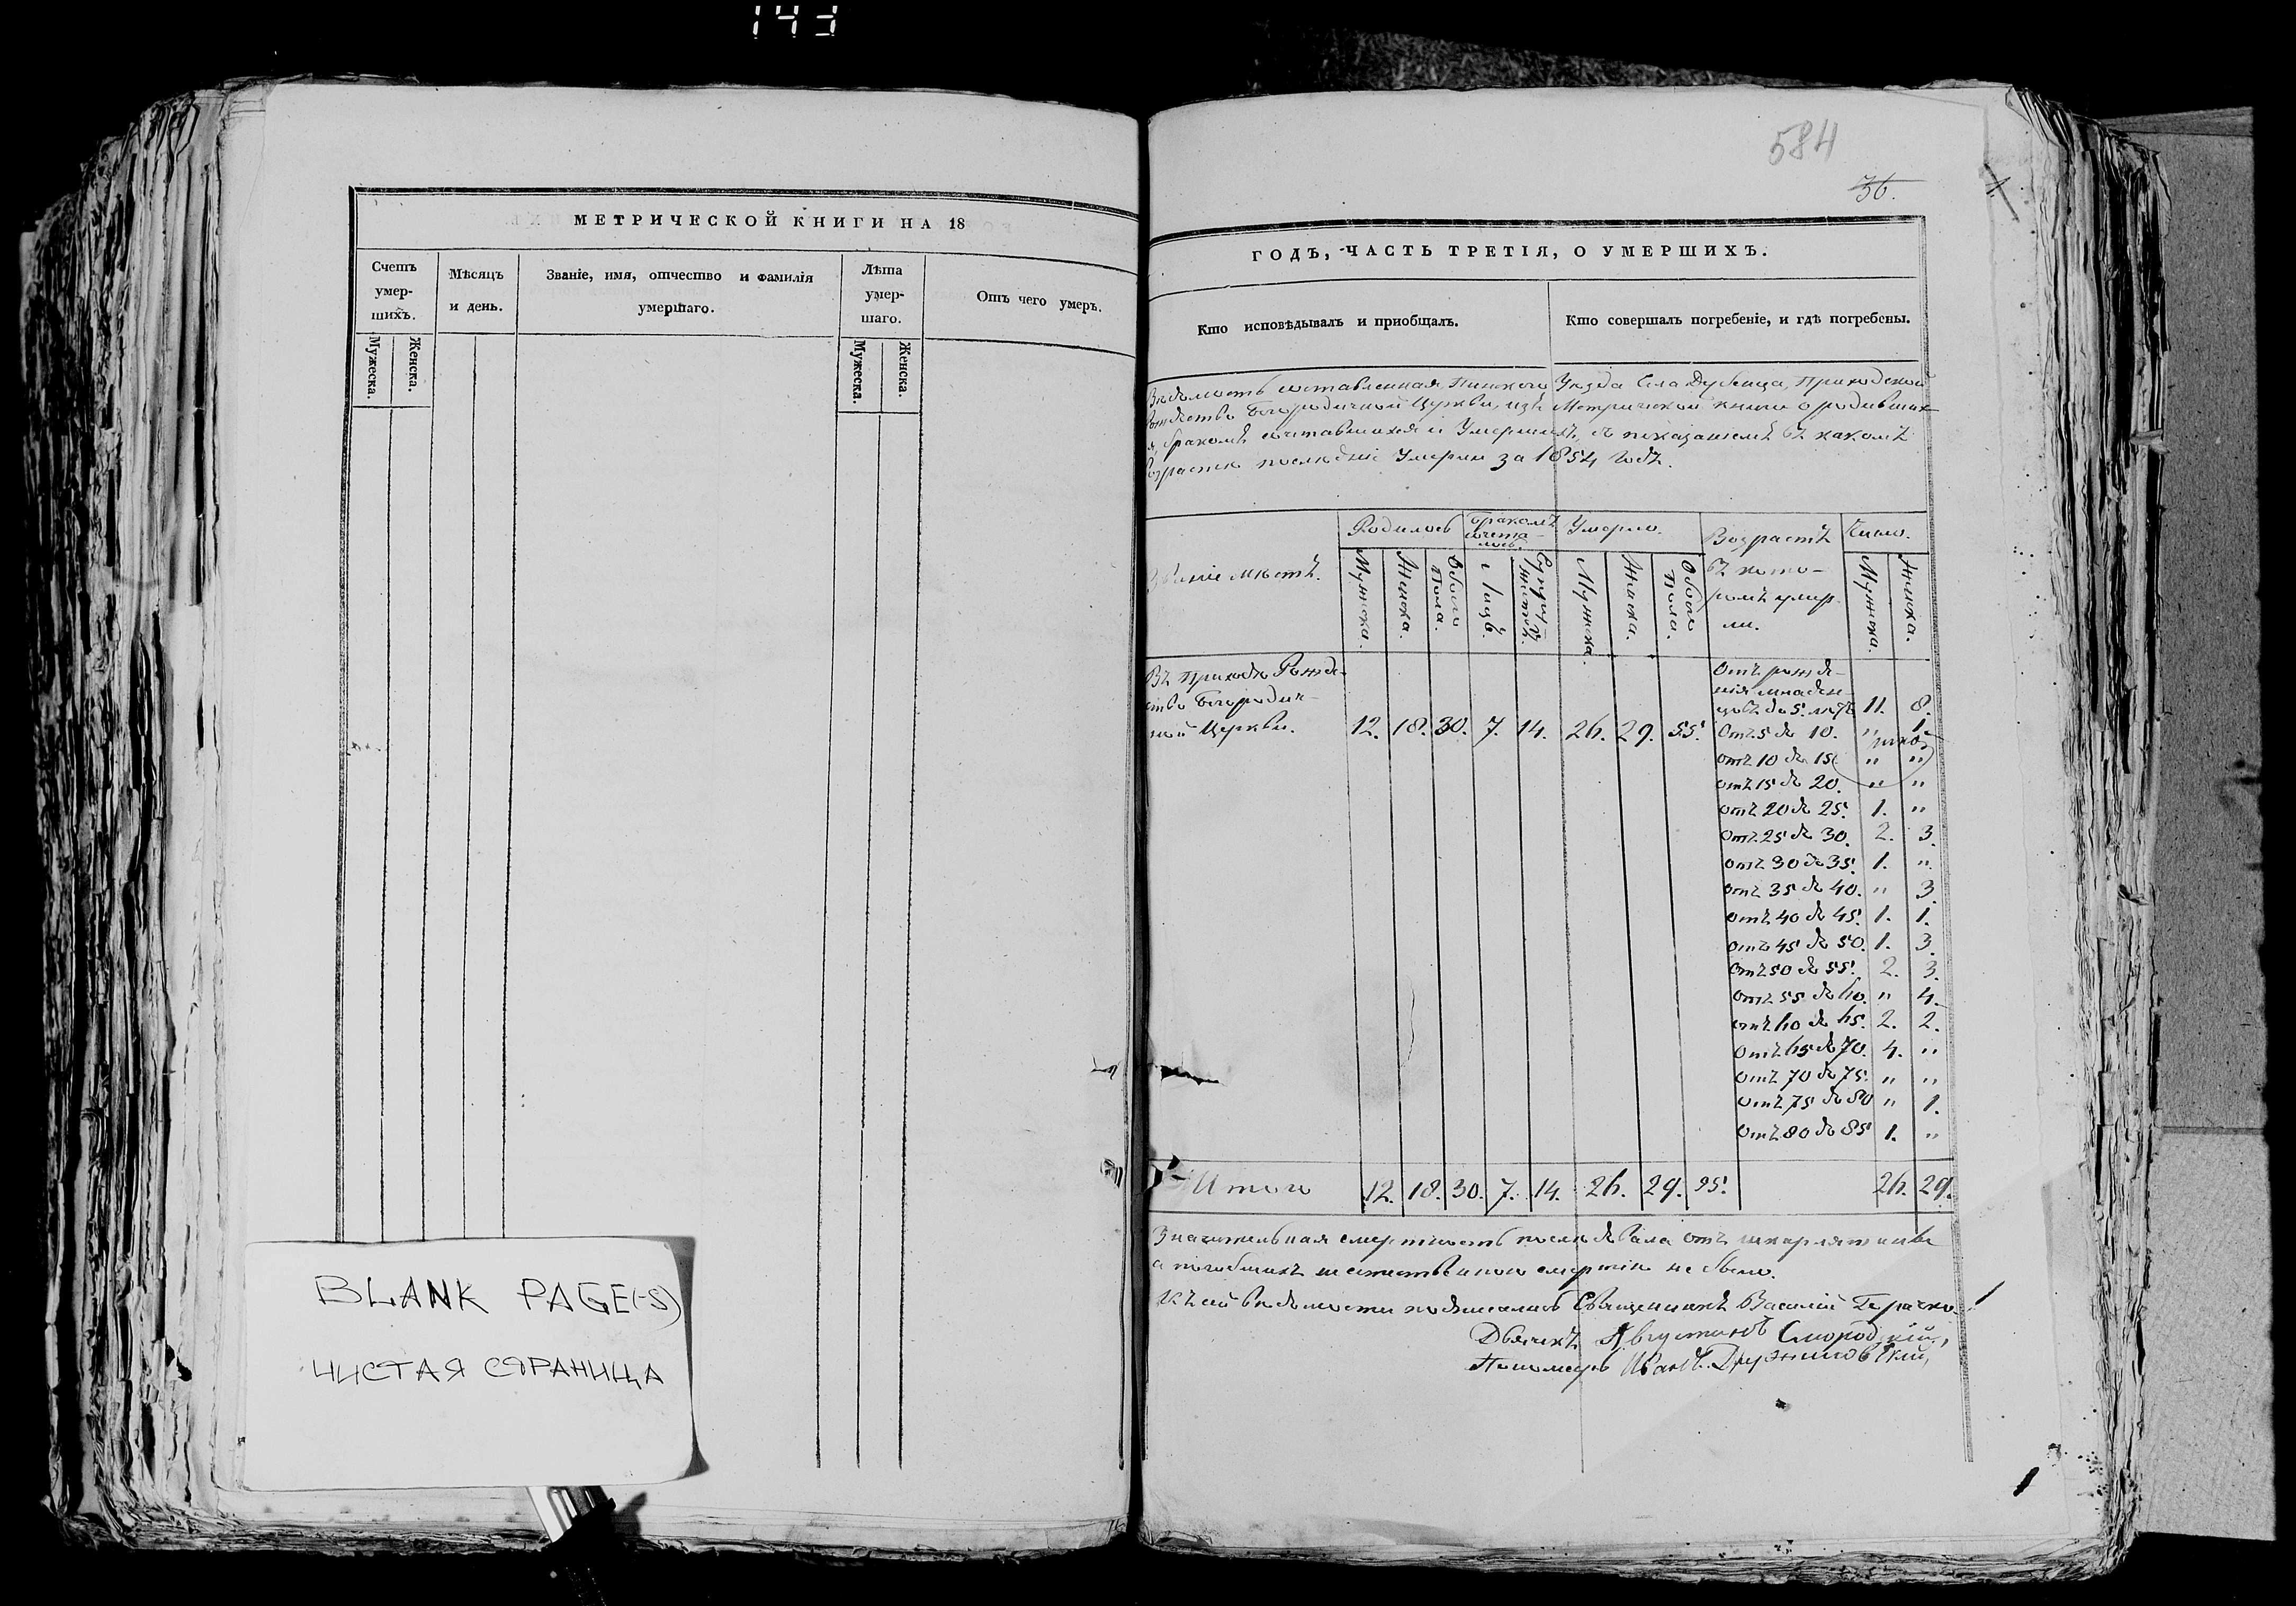 143
МЕТРИЧЕСКОЙ КНИГИ НА 18
Счетъ умер-шихъ.
Мѣсяцъ и день.
Званіе, имя, отчество и фамилія умершаго.
Лѣта умер-шаго.
Отъ чего умеръ.
Мужеска.
Женска.
Мужеска.
Женска.
BLANK PAGE(-S)
ЧИСТАЯ СТРАНИЦА
584
36.
ГОДЪ, ЧАСТЬ ТРЕТІЯ, О УМЕРШИХЪ.
Кто исповѣдывалъ и пріобщалъ.
Кто совершалъ погребеніе, и гдѣ погребены.
Вѣдомость составленная Пинского Уѣзда Села Дубенца, Приходской
Рождество Богородичной Церкви, изъ Метрической книги о родивших-
ся, бракомъ сочетавшихся и Умершихъ, съ показаніемъ въ какомъ
возрастѣ послѣдніе Умерли за 1854 годъ.
Званіе мѣстъ.
Родилось
Бракомъ сочета-лось.
Умерло.
Возрастъ въ кото-ромъ умер-ли.
Число.
Мужска.
Женска.
Обоего Пола.
Лицъ.
Супружествъ.
Мужска.
Женска.
Обоего Пола.
Мужска.
Женска.
Въ Приходѣ Рожде-
ство Богородич-
ной Церкви. 12. 18. 30. 7. 14. 26. 29. 55.
Отъ рожде-
нія младен-
цовъ до 5. лѣтъ 11. 8.
Отъ 5 до 10. " 1.
отъ 10 до 15 " "
отъ 15 до 20. " "
отъ 20 до 25. 1. "
отъ 25 до 30. 2. 3.
отъ 30 до 35. 1. "
отъ 35 до 40. " 3.
отъ 40 до 45. 1. 1.
отъ 45 до 50. 1. 3.
Отъ 50 до 55. 2. 3.
отъ 55 до 60. " 4.
отъ 60 до 65. 2. 2.
отъ 65 до 70. 4. "
отъ 70 до 75. " "
отъ 75 до 80 " 1.
отъ 80 до 85 1. "
Итого 12. 18. 30. 7. 14. 26. 29. 55. 26. 29.
Значительная смертность послѣдовала отъ шкарлятины
а погибшихъ неестественною смертію не было.
Къ сей вѣдомости подписались Священникъ Василій
Дьячекъ Августинъ Смород
Пономарь Иванъ